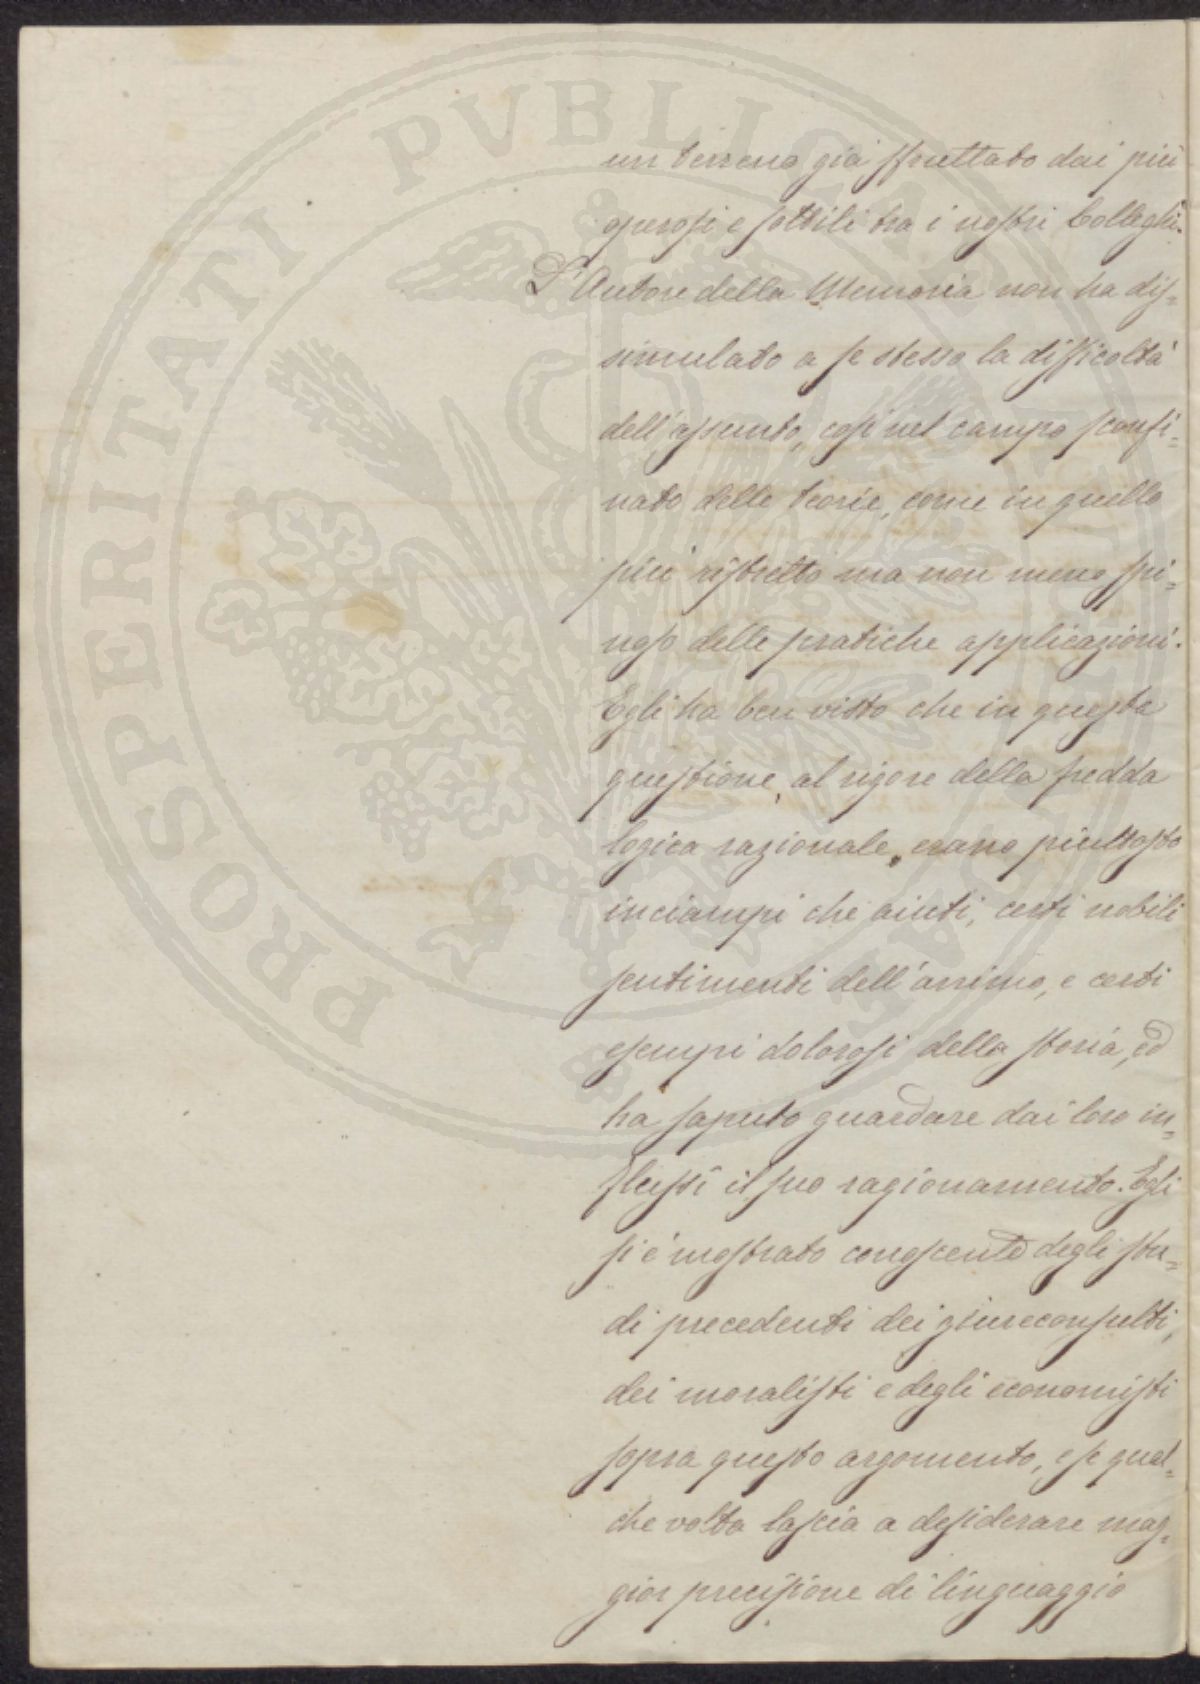 un terreno già sfruttato dai più
operosi e sottili tra i nostri Colleghi.
L'Autore della Memoria non ha dis=
simulato a se stesso la difficoltà
dell'assunto, così nel campo sconfi=
nato delle teorie, come in quello
più ristretto ma non meno spi=
noso delle pratiche applicazioni.
Egli ha ben visto che in questa
questione, al rigore della fredda
logica razionale, erano piuttosto
inciampi che aiuti, certi nobili
sentimenti dell'animo, e certi
esempi dolorosi della storia, ed
ha saputo guardare dai loro in=
flussi il suo ragionamento. Egli
si è mostrato conoscente degli stu=
di precedenti dei giureconsulti,
dei moralisti e degli economisti
sopra questo argomento, e se qual=
che volta lascia a desiderare mag=
gior precisione di linguaggio
PROSPERITATI PVBLICAE AVGENDAE